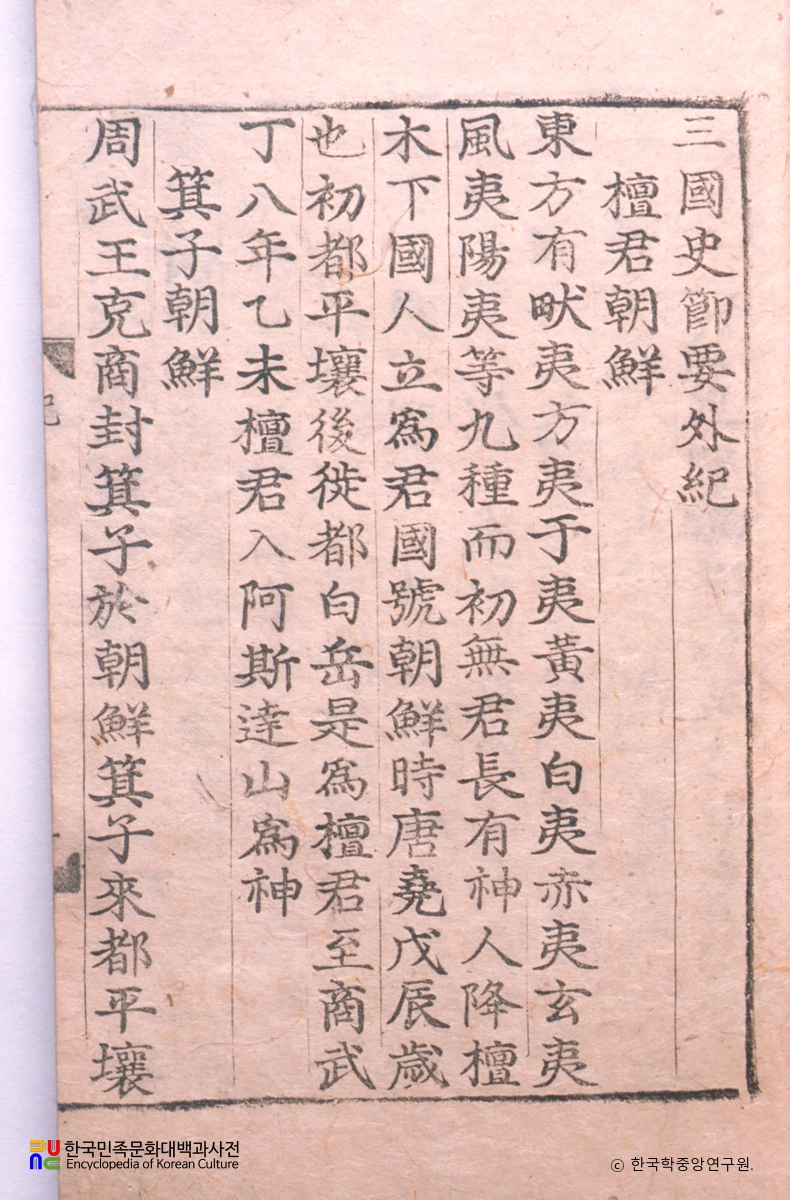 三國史節要外紀
檀君朝鮮
東方有畎夷方夷于夷黃夷白夷赤夷玄夷
風夷陽夷等九種而初無君長有神人降檀
木下國人立爲君國號朝鮮時唐堯戊辰歲
也初都平壤後徙都白岳是爲檀君至商武
丁八年乙未檀君入阿斯達山爲神
箕子朝鮮
周武王克商封箕子於朝鮮箕子來都平壤
한국민족문화대백과사전
Encyclopedia of Korean Culture
© 한국학중앙연구원.